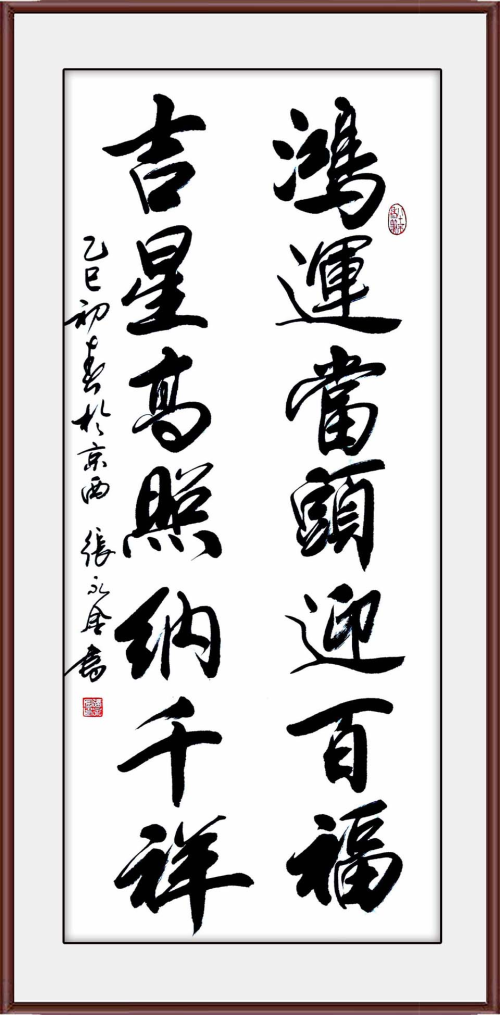 鴻運當頭迎百福
吉星高照纳千祥
乙巳初春於京西 張永